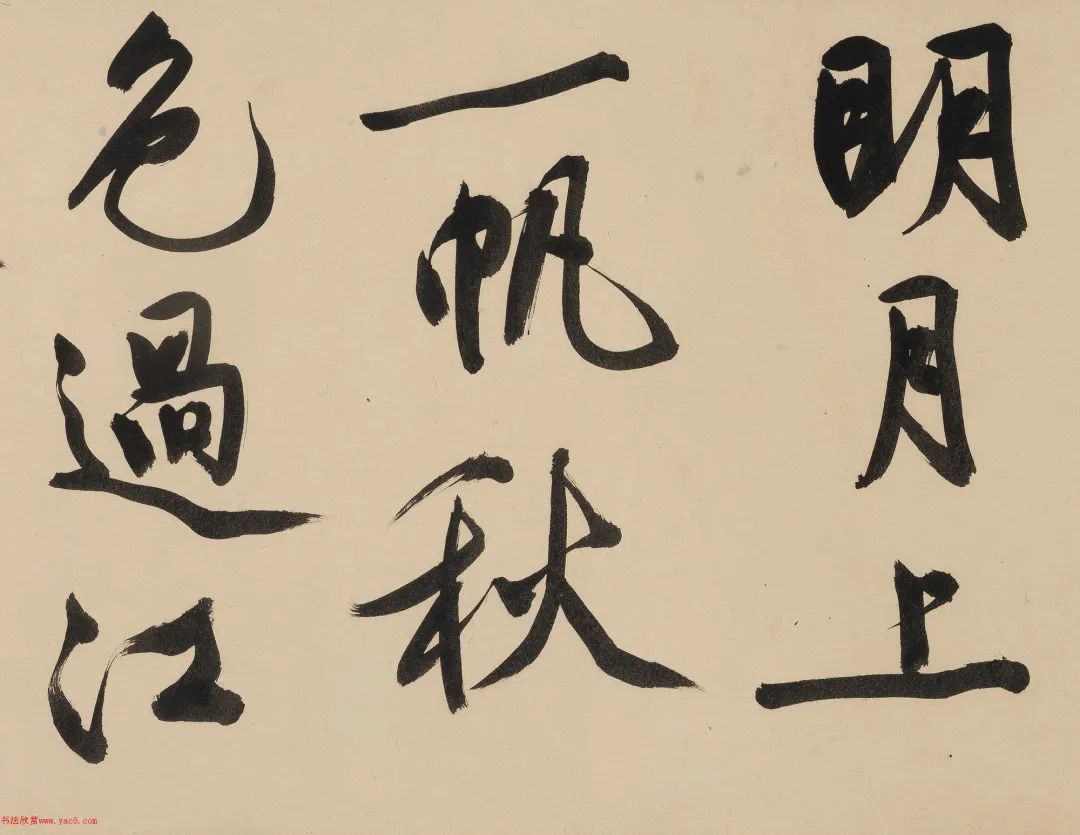 明月上
一帆秋
色過江
书法欣赏www.yac8.com